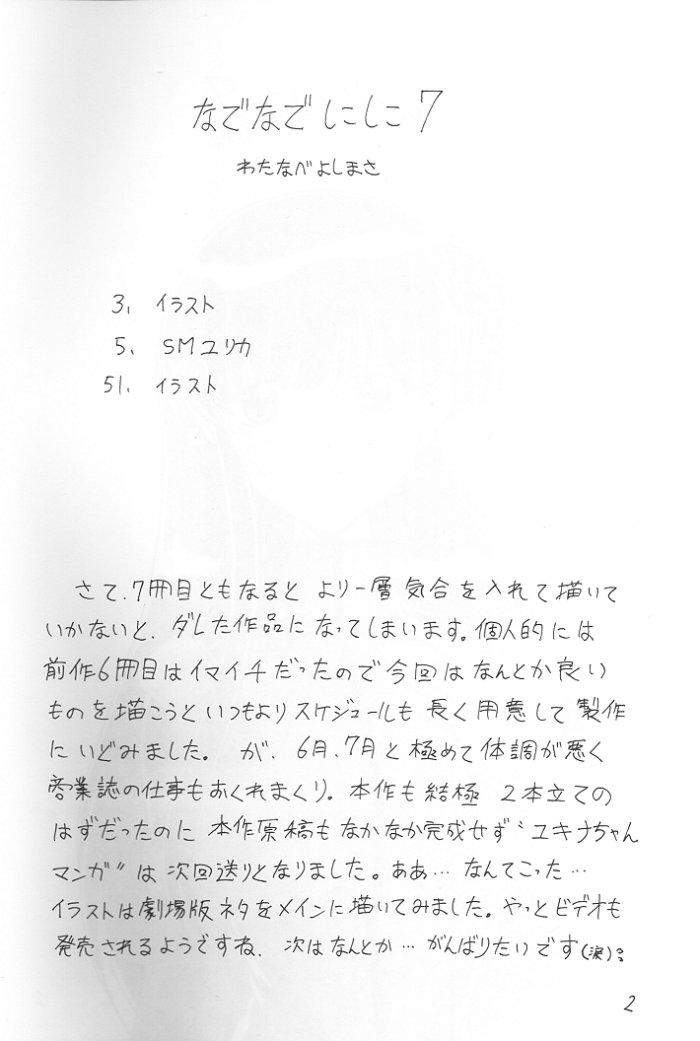 なでなでしこしこ7
わたなべよしまさ
3、イラスト
5、SMユリカ
51、イラスト
さて、7冊目ともなると より一層 気合を入れて描いて
いかないと、ダレた作品になってしまいます。個人的には
前作6冊目はイマイチだったので今回はなんとか良い
ものを描こうといつもよりスケジュールも長く用意して製作
にいどみました。 が、6月、7月と極めて体調が悪く
商業誌の仕事もおくれまくり。本作も結極 2本立ての
はずだったのに 本作原稿もなかなか完成せず〝ユキナちゃん
マンガ〟は次回送りとなりました。ああ…なんてこった…
イラストは劇場版ネタをメインに描いてみました。やっとビデオも
発売されるようですね、次はなんとか…がんばりたいです(涙)。
2